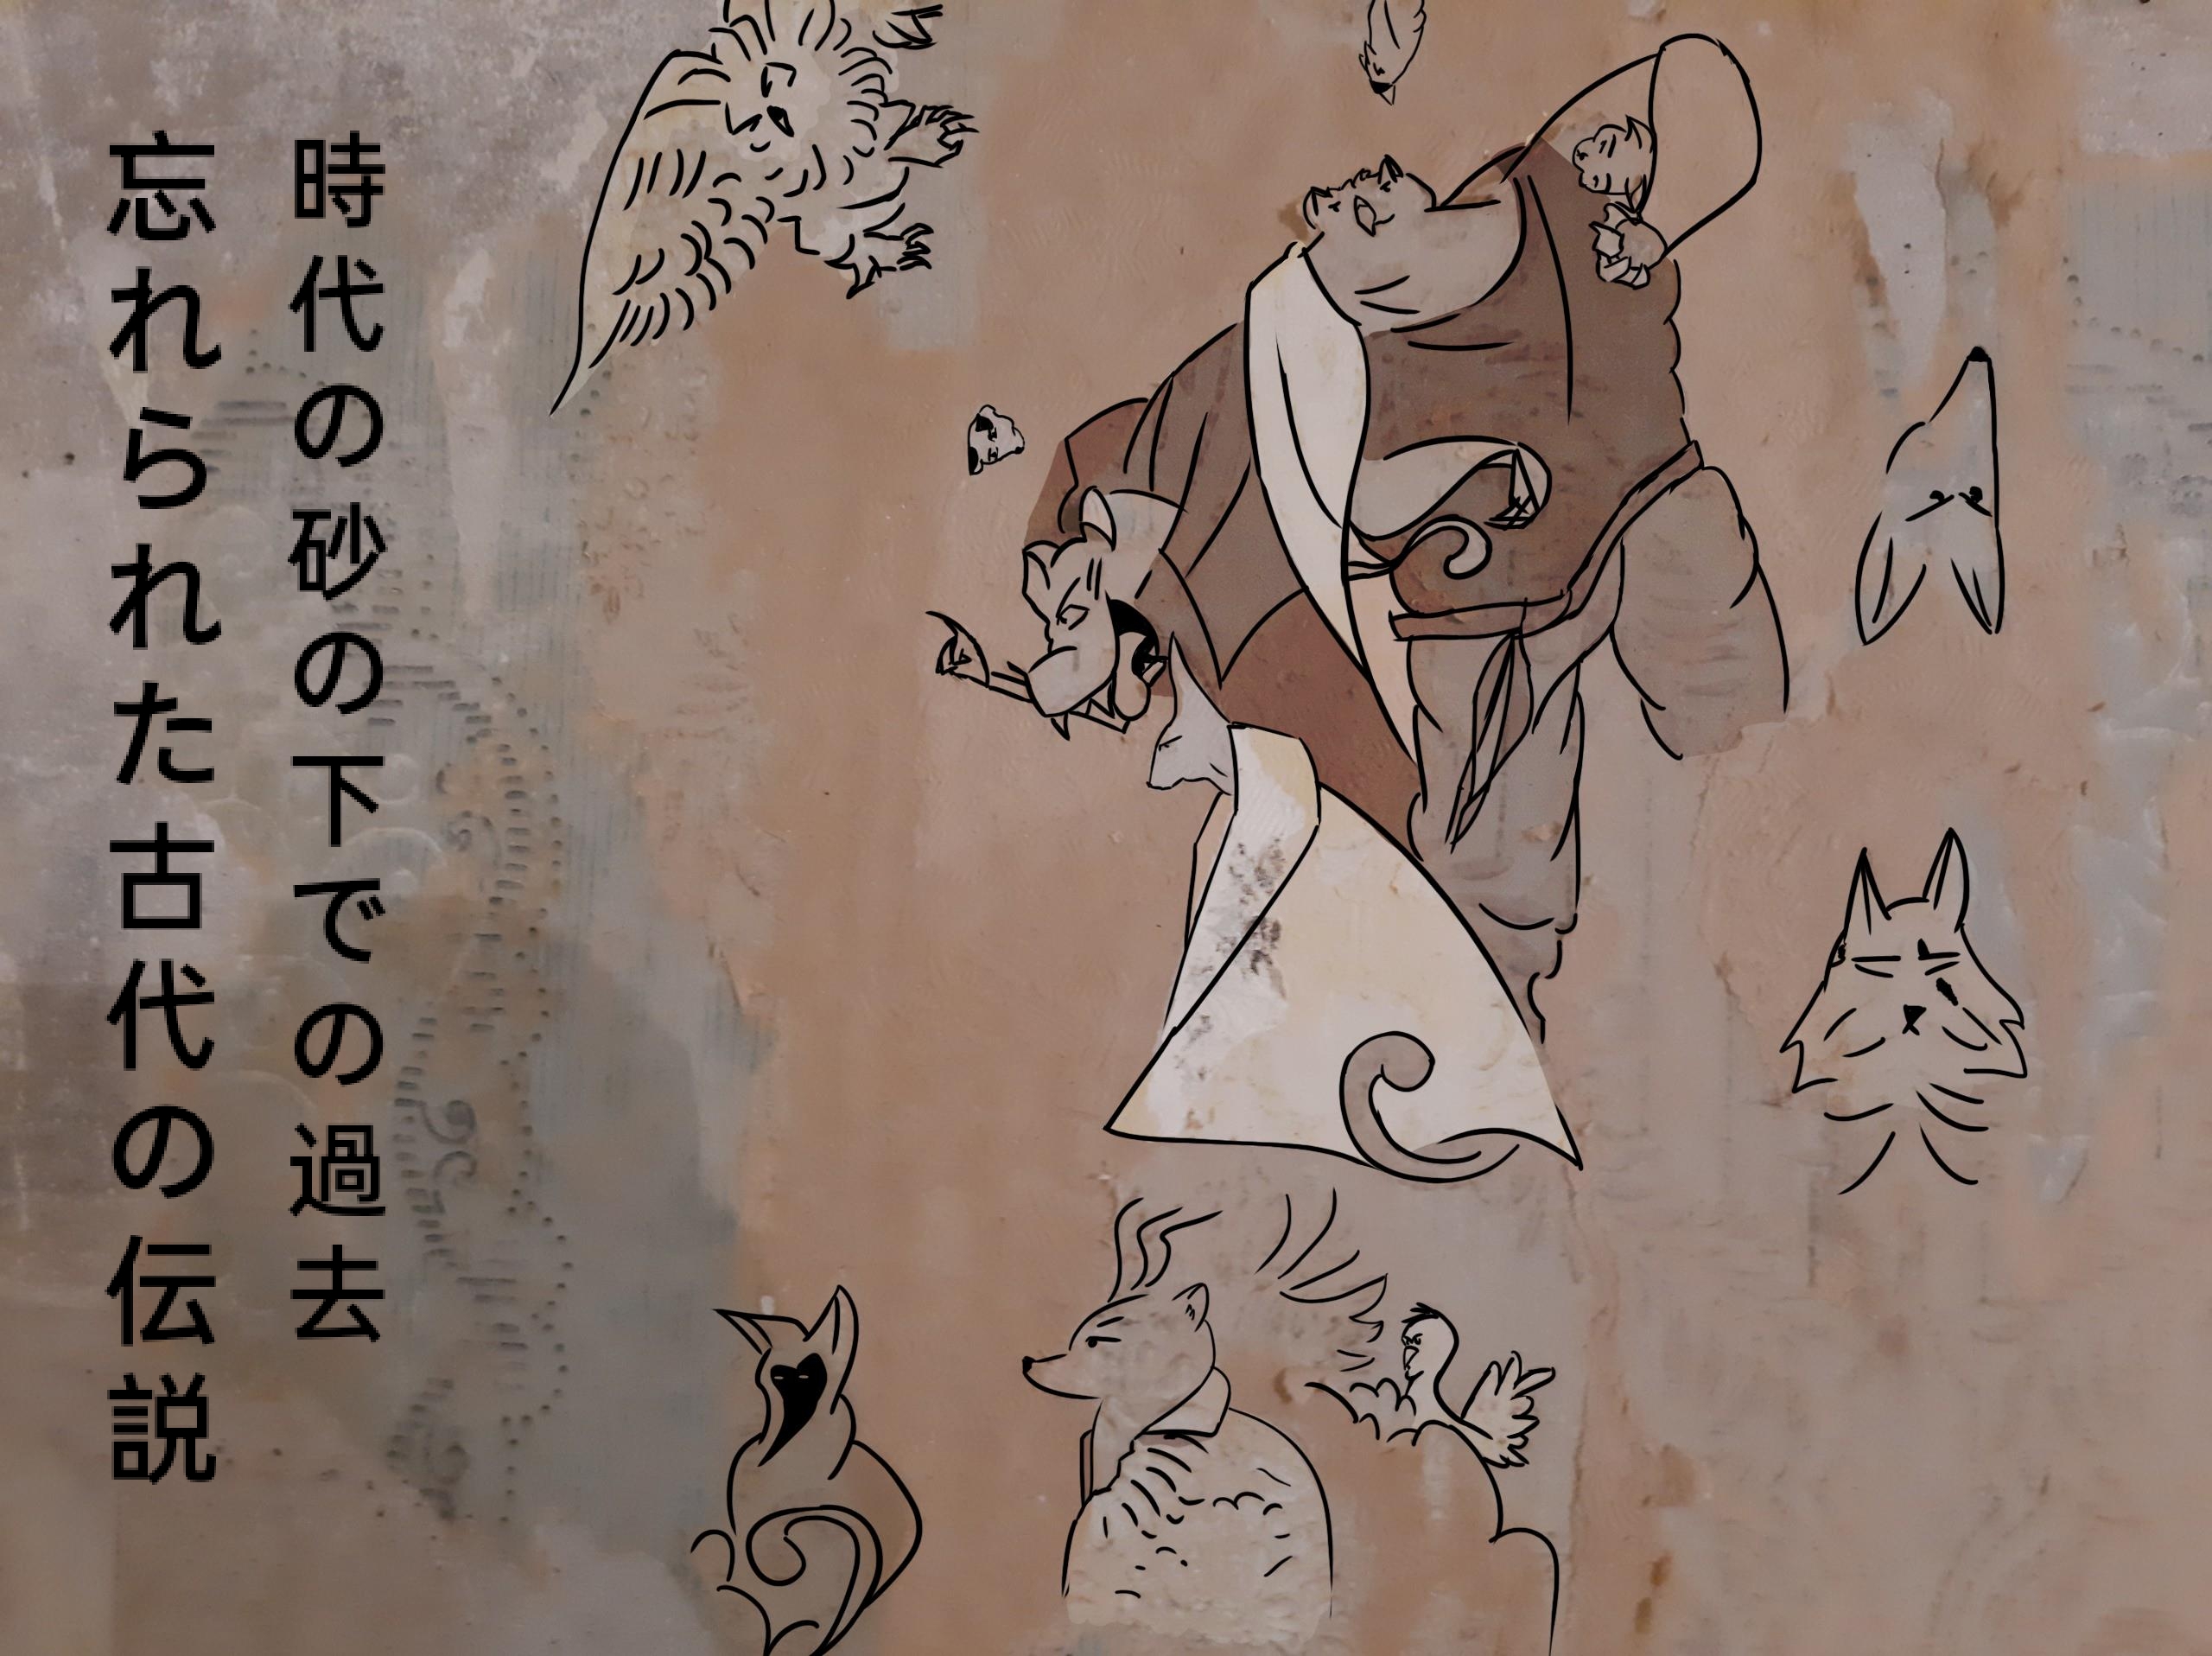 時代の砂の下での過去
忘れられた古代の伝説